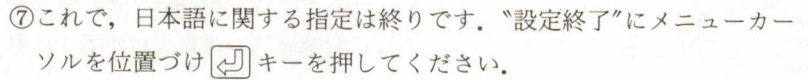 ⑦これで，日本語に関する指定は終りです．〝設定終了″にメニューカー
ソルを位置づけ⏎キーを押してください．